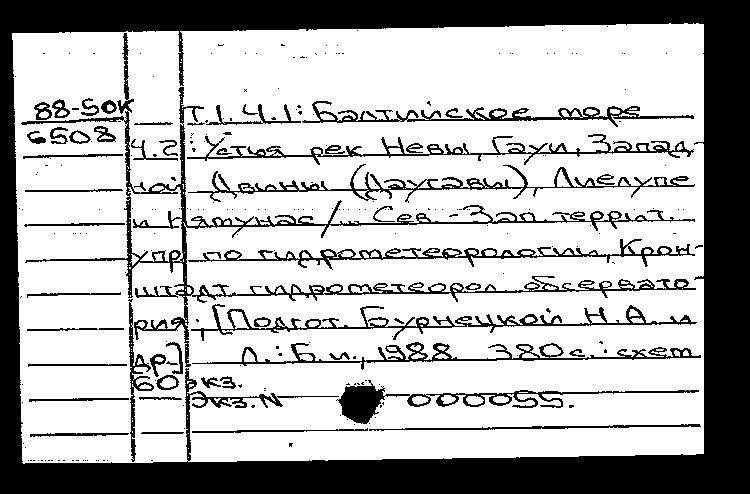 88-50К Т.1.Ч.1: Балтийское море
6508 Ч.2: Устья рек Невы, Гауи, Запад-
ной Двины (Даугавы), Лиелупе
и Нямунас/... Сев.-Зап. террит.
упр. по гидрометеорологии, Крон-
штадт. гидрометеорол. обсервато-
рия; [Подгот. Бурнецкой Н.А. и
др.] Л.: Б.и., 1988. 380 с.: схем
60 экз.
Экз. N 000055.